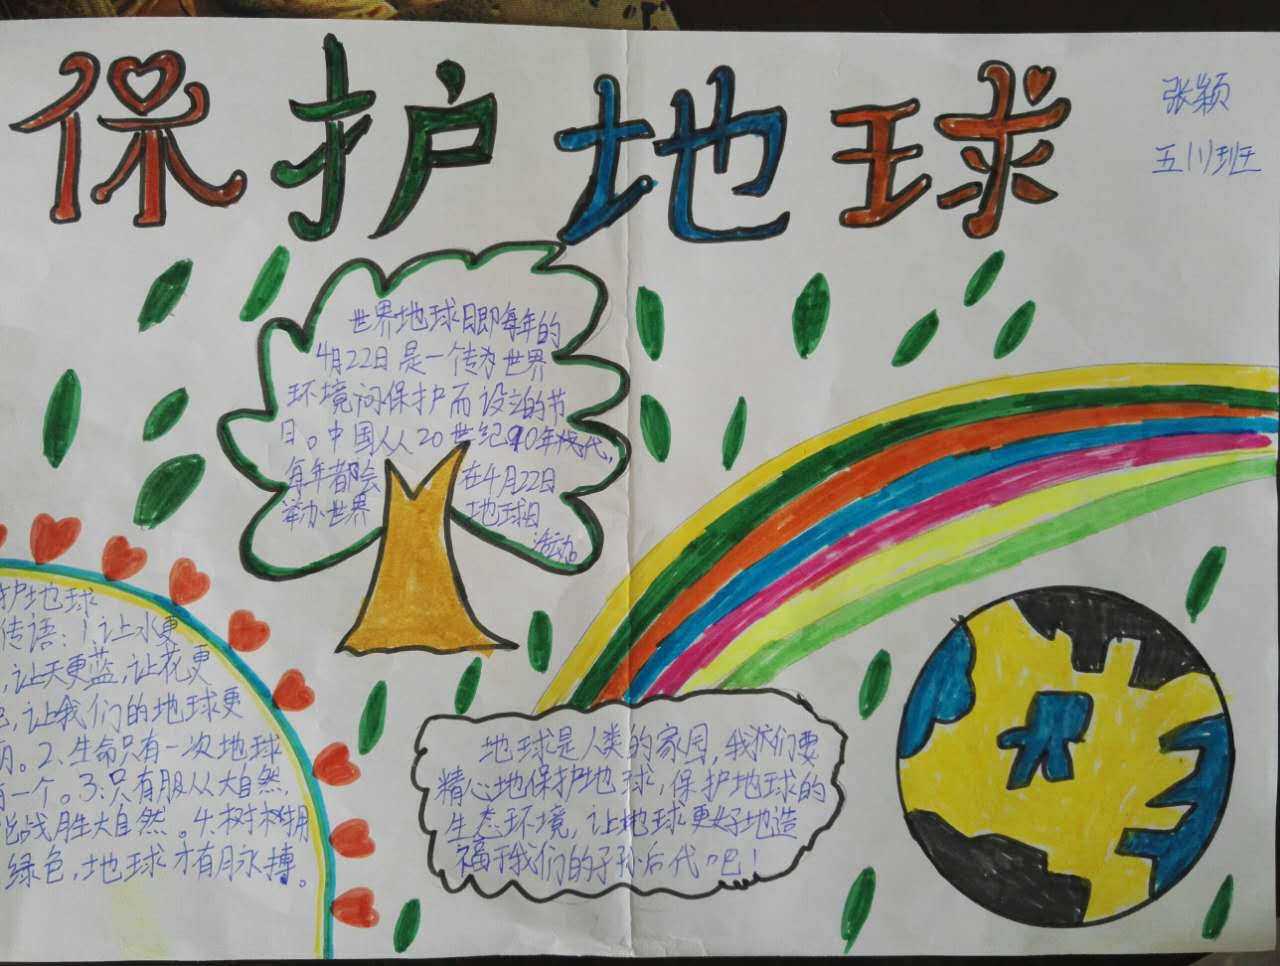 保护地球
张颖
五川班
世界地球日即每年的
4月22日是一个传为世界
环境问保护而设立的节
日。中国从20世纪90年代,
每年都会在4月22日
举办世界地球日
活动
护地球
传语:1.让水更
,让天更蓝,让花更
,让我们的地球更
。2、生命只有一次地球
一个。3:只有服从大自然,
战胜大自然。4.树木拥
绿色,地球才有脉搏。
地球是人类的家园,我们要
精心地保护地球,保护地球的
生态环境,让地球更好地造
福于我们的子孙后代吧!